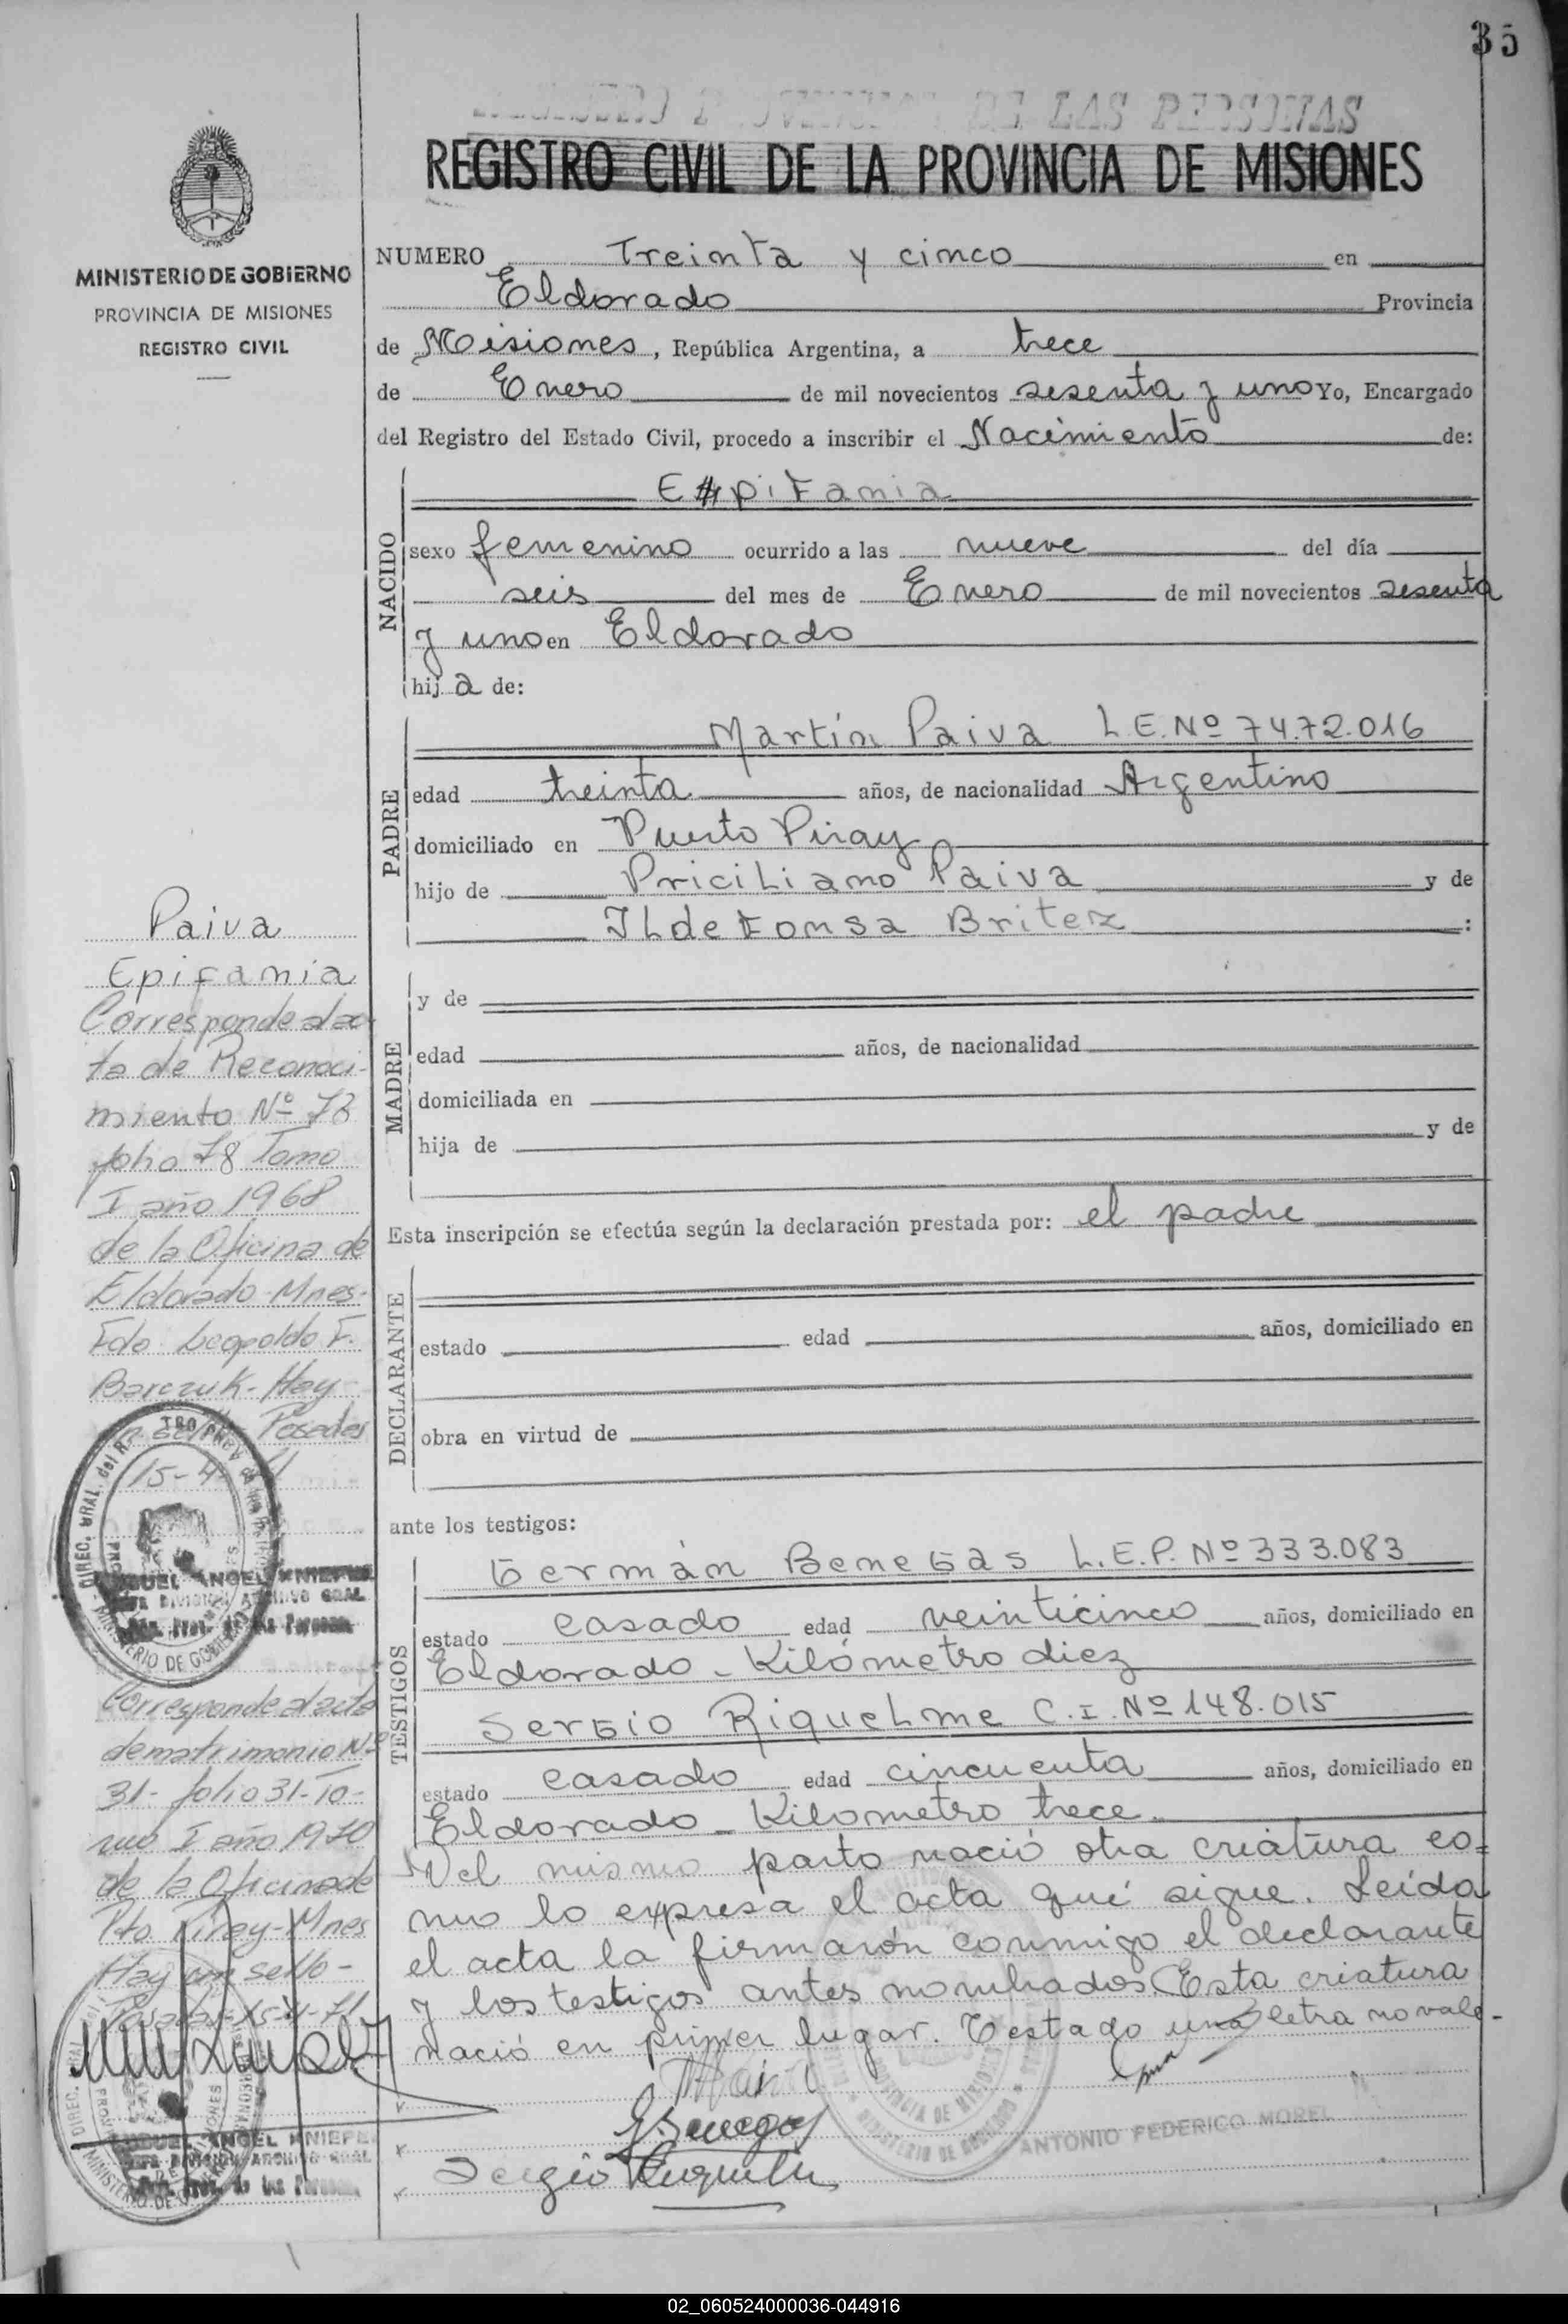 35
REGISTRO PROVINCIAL DE LAS PERSONAS
REGISTRO CIVIL DE LA PROVINCIA DE MISIONES
MINISTERIO DE GOBIERNO
PROVINCIA DE MISIONES
REGISTRO CIVIL
NUMERO Treinta y cinco en
Eldorado Provincia
de Misiones, República Argentina, a trece
de Enero de mil novecientos sesenta y uno Yo, Encargado
del Registro del Estado Civil, procedo a inscribir el Nacimiento de:
NACIDO
Epifania
sexo femenino ocurrido a las nueve del día
seis del mes de Enero de mil novecientos sesenta
y uno en Eldorado
hij a de:
PADRE
Martín Paiva L.E.Nº 74.72.016
edad treinta años, de nacionalidad Argentino
domiciliado en Puerto Piray
hijo de Priciliano Paiva y de
Ildefonsa Britez :
MADRE
y de
edad años, de nacionalidad
domiciliada en
hija de y de
Esta inscripción se efectúa según la declaración prestada por: el padre
DECLARANTE
estado edad años, domiciliado en
obra en virtud de
ante los testigos:
TESTIGOS
Germán Benegas L.E.P. Nº 333.083
estado casado edad veinticinco años, domiciliado en
Eldorado - Kilómetro diez
Sergio Riquelme C.I. Nº 148.015
estado casado edad cincuenta años, domiciliado en
Eldorado - Kilometro trece.
Del mismo parto nació otra criatura co=
mo lo expresa el acta qué sigue. Leída
el acta la firmarón conmigo el declarante
y los testigos antes nombrados. Esta criatura
nació en primer lugar. Testado una letra no vale-
ANTONIO FEDERICO MOREL
Paiva
Epifania
Corresponde al ac-
ta de Reconoci-
miento Nº 78
folio 78 Tomo
I año 1968
de la Oficina de
Eldorado-Mnes-
Fdo. Leopoldo F.
Barczuk- Hay
Posadas
15-4-
DIREC. GRAL. del
MINISTERIO DE GOBIERNO
MIGUEL ANGEL KNIEPE
JEFE DIVISION ARCHIVO GRAL
Corresponde al acta
de matrimonio Nº
31- folio 31-To-
mo I año 1970
de la Oficina de
Pto Piray-Mnes
Hay un sello-
Posadas-15-4-71
MIGUEL ANGEL KNIEPE
JEFE DIVISION ARCHIVO GRAL
02_060524000036-044916